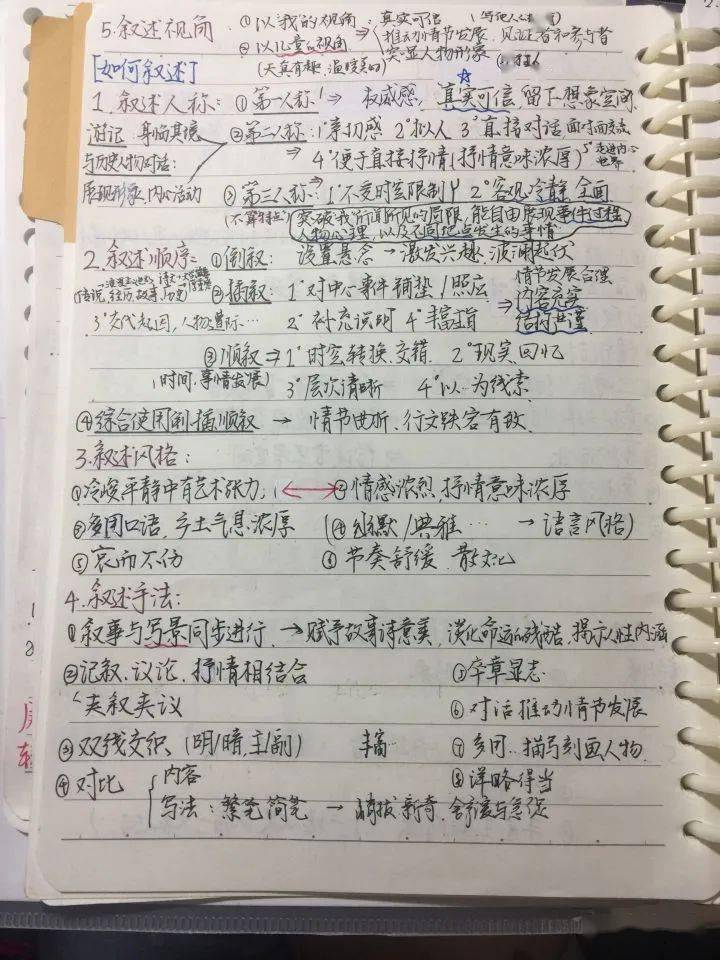 5.叙述视角 ①以我的视角：真实可信
②以儿童的视角 推动情节发展、见证者和参与者
(天真有趣、温暖美好) 突显人物形象
[如何叙述]
1.叙述人称：①第一人称 ⇒ 权威感，真实可信 留下想象空间
游记 身临其境 ②第二人称：1°亲切感 2°拟人 3°直接对话 面对面交流
与历史人物对话： ⇒ 4°便于直接抒情(抒情意味浓厚) 5°走进内心世界
展现形象、内心活动 ③第三人称：1°不受时空限制 2°客观冷静 全面
(不算特点) 突破我所闻所见的局限，能自由展现事件过程
人物心理，以及不同地点发生的事情
2.叙述顺序：①倒叙：设置悬念→激发兴趣、波澜起伏
(传说，经历，故事，历史) ②插叙：1°对中心事件铺垫/照应 ⇒ 情节发展合理
内容充实
3°交代起因，人物遭际… 2°补充说明 4°丰富主旨 结构严谨
③顺叙⇒1°时空转换、交错 2°现实、回忆
(时间、事情发展) 3°层次清晰 4°以…为线索
④综合使用倒插顺叙 → 情节曲折、行文跌宕有致
3.叙述风格：
①冷峻平静中有艺术张力 ⟷ ②情感浓烈 抒情意味浓厚
③多用口语，乡土气息浓厚 (④幽默/典雅… → 语言风格)
⑤哀而不伤 ⑥节奏舒缓 散文化
4.叙述手法：
①叙事与写景同步进行，→赋予故事诗意美，淡化命运的残酷，揭示人性内涵
②记叙、议论、抒情相结合 ⑤卒章显志
夹叙夹议 ⑥对话推动情节发展
③双线交织、(明/暗，主/副) 丰富 ⑦多用…描写刻画人物
④对比 内容 ⑧详略得当
写法：繁笔简笔 → 峭拔新奇